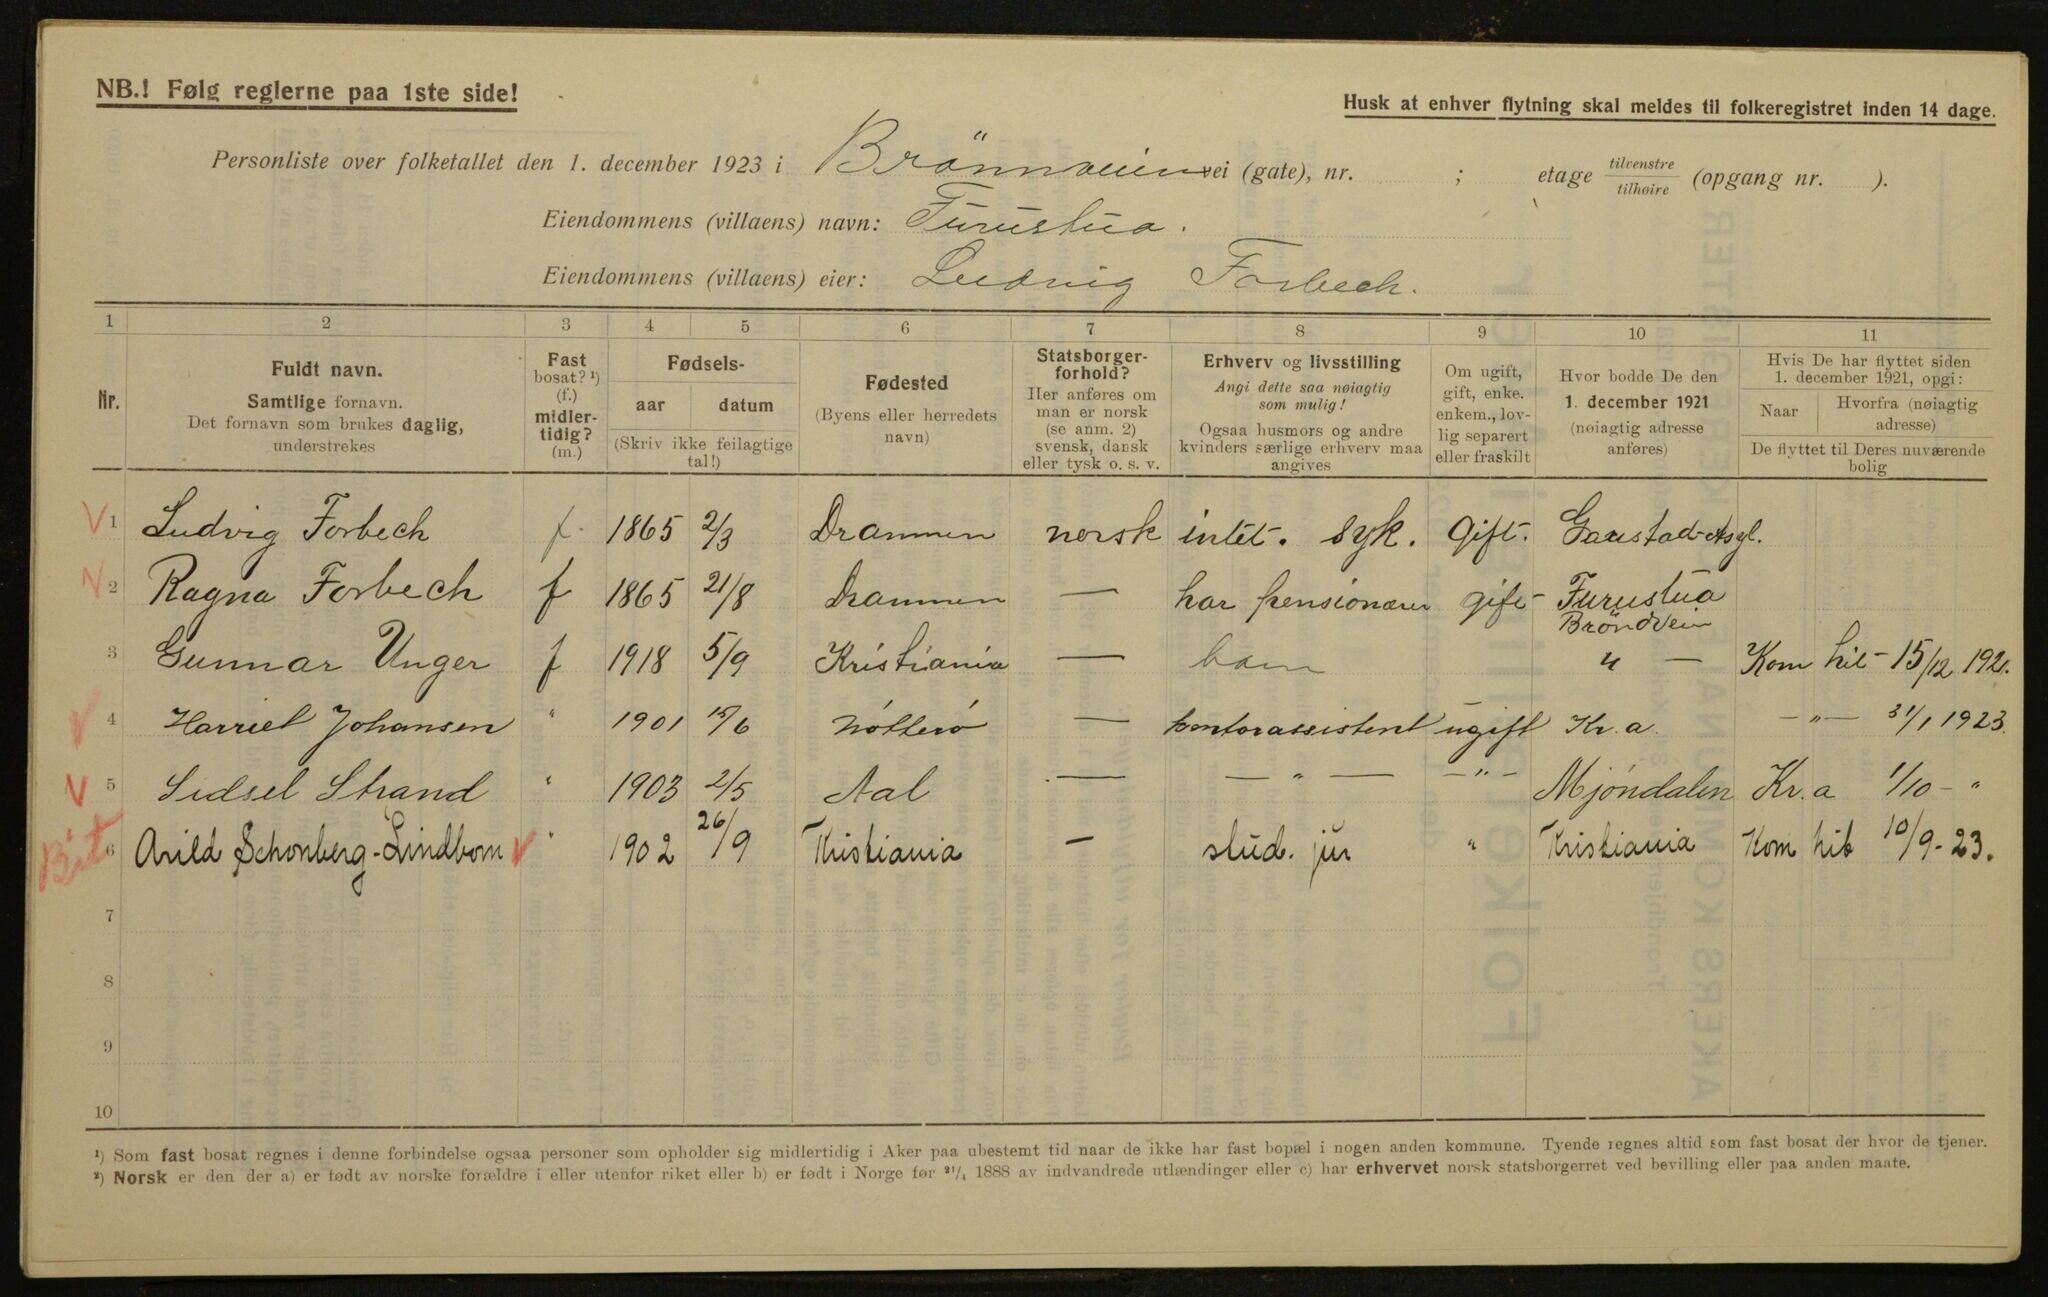 NB.! Følg reglerne paa 1ste side!
Husk at enhver flytning skal meldes til folkeregistret inden 14 dage.
Personliste over folketallet den 1. december 1923 i Brönnveien vei (gate), nr. ; etage tilvenstre tilhøire (opgang nr. ).
Eiendommens (villaens) navn: Furustua.
Eiendommens (villaens) eier: Ludvig Forbech.
1 2 3 4 5 6 7 8 9 10 11
Nr.
Fuldt navn.
Samtlige fornavn.
Det fornavn som brukes daglig,
understrekes
Fast
bosat? ¹)
(f.)
midler-
tidig?
(m.)
Fødsels-
aar datum
(Skriv ikke feilagtige
tal!)
Fødested
(Byens eller herredets
navn)
Statsborger-
forhold?
Her anføres om
man er norsk
(se anm. 2)
svensk, dansk
eller tysk o. s. v.
Erhverv og livsstilling
Angi dette saa nøiagtig
som mulig!
Ogsaa husmors og andre
kvinders særlige erhverv maa
angives
Om ugift,
gift, enke.
enkem., lov-
lig separert
eller fraskilt
Hvor bodde De den
1. december 1921
(nøiagtig adresse
anføres)
Hvis De har flyttet siden
1. december 1921, opgi:
Naar Hvorfra (nøiagtig
adresse)
De flyttet til Deres nuværende
bolig
V 1 Ludvig Forbech f. 1865 2/3 Drammen norsk intet. syk. Gift. Gaustad Asyl.
V 2 Ragna Forbech f 1865 21/8 Drammen — har pensionærer gift - Furustua
Bröndvein
3 Gunnar Unger f 1918 5/9 Kristiania — barn " — Kom hit - 15/12 1921.
V 4 Harriet Johansen " 1901 15/6 Nötterö — kontorassistent ugift Kr.a. —"— 31/1 1923.
V 5 Sidsel Strand " 1903 2/5 Aal — — " — —"— Mjöndalen Kr.a 1/10 - "
Bit 6 Arild Schonberg-Lindbom V " 1902 26/9 Kristiania — stud. jur " Kristiania Kom hit 10/9-23.
7
8
9
10
¹) Som fast bosat regnes i denne forbindelse ogsaa personer som opholder sig midlertidig i Aker paa ubestemt tid naar de ikke har fast bopæl i nogen anden kommune. Tyende regnes altid som fast bosat der hvor de tjener.
²) Norsk er den der a) er født av norske forældre i eller utenfor riket eller b) er født i Norge før 21/4 1888 av indvandrede utlændinger eller c) har erhvervet norsk statsborgerret ved bevilling eller paa anden maate.